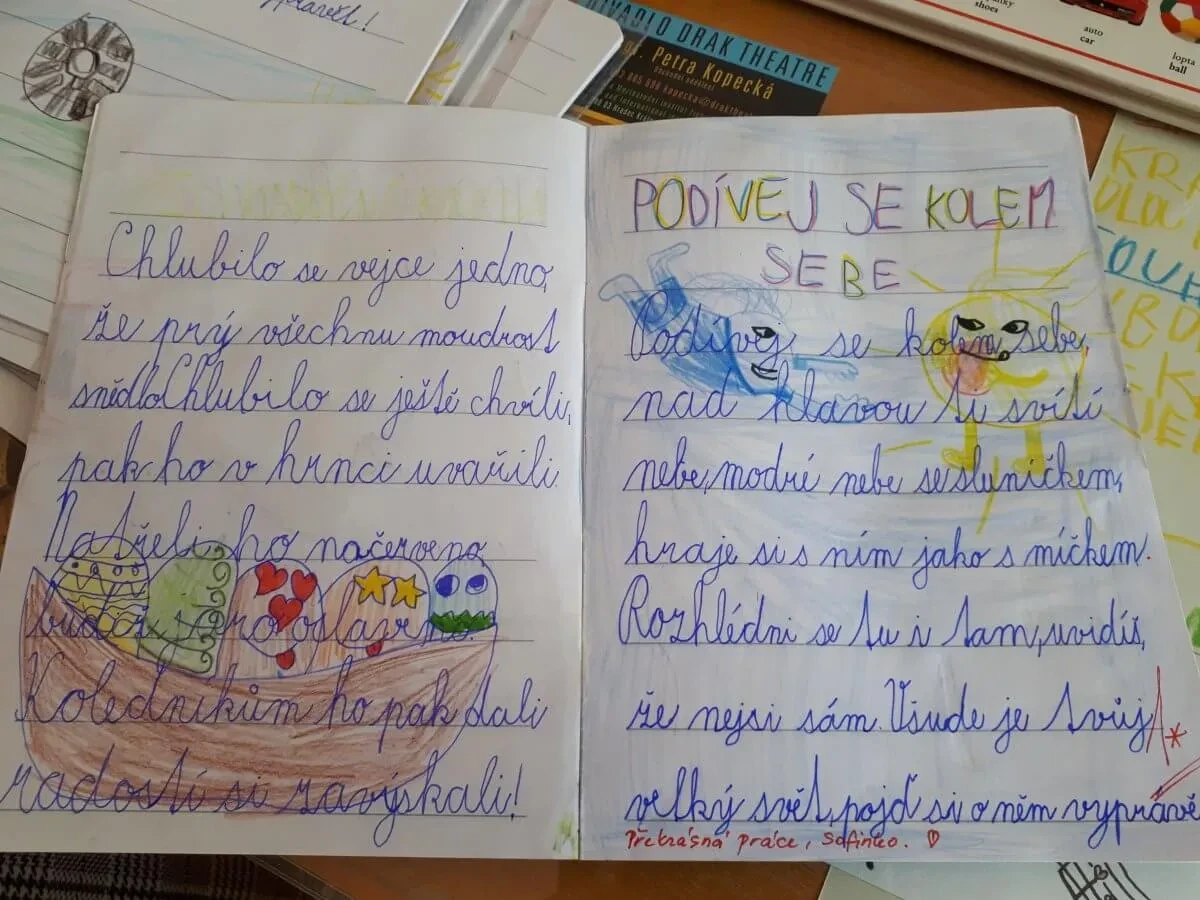 DIVADLO DRAK THEATRE
Petra Kopecká
shoes
auto
car
lopta
ball
Chlubilo se vejce jedno,
že prý všechnu moudrost
snědlo. Chlubilo se ještě chvíli,
pak ho v hrnci uvařili.
Natřeli ho načerveno
Koledníkům ho pak dali
radostí si zavýskali!
PODÍVEJ SE KOLEM
SEBE
Podívej se kolem sebe,
nad hlavou ti svítí
nebe, modré nebe se sluníčkem,
hraje si s ním jako s míčkem.
Rozhlédni se tu i tam, uvidíš,
že nejsi sám. Všude je tvůj
velký svět, pojď si o něm vyprávě
Překrásná práce, Sofinko.
1*